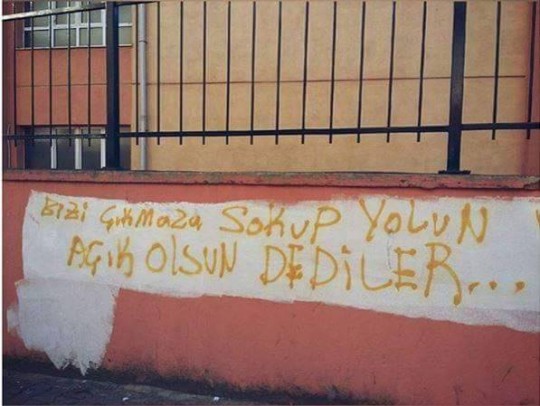 Bizi ÇıkMaza SOKUP YOLUN
AÇıK OLSUN DEDİLER...